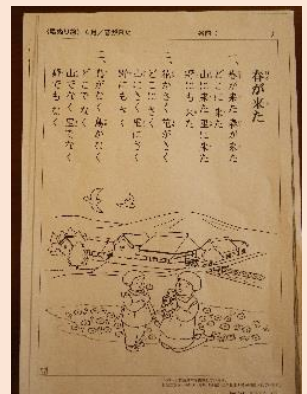 春が来た
一、春が来た 春が来た
どこに来た
山に来た 里に来た
野にも来た
二、花がさく 花がさく
どこにさく
山にさく 里にさく
野にもさく
三、鳥がなく 鳥がなく
どこでなく
山でなく 里でなく
野でもなく